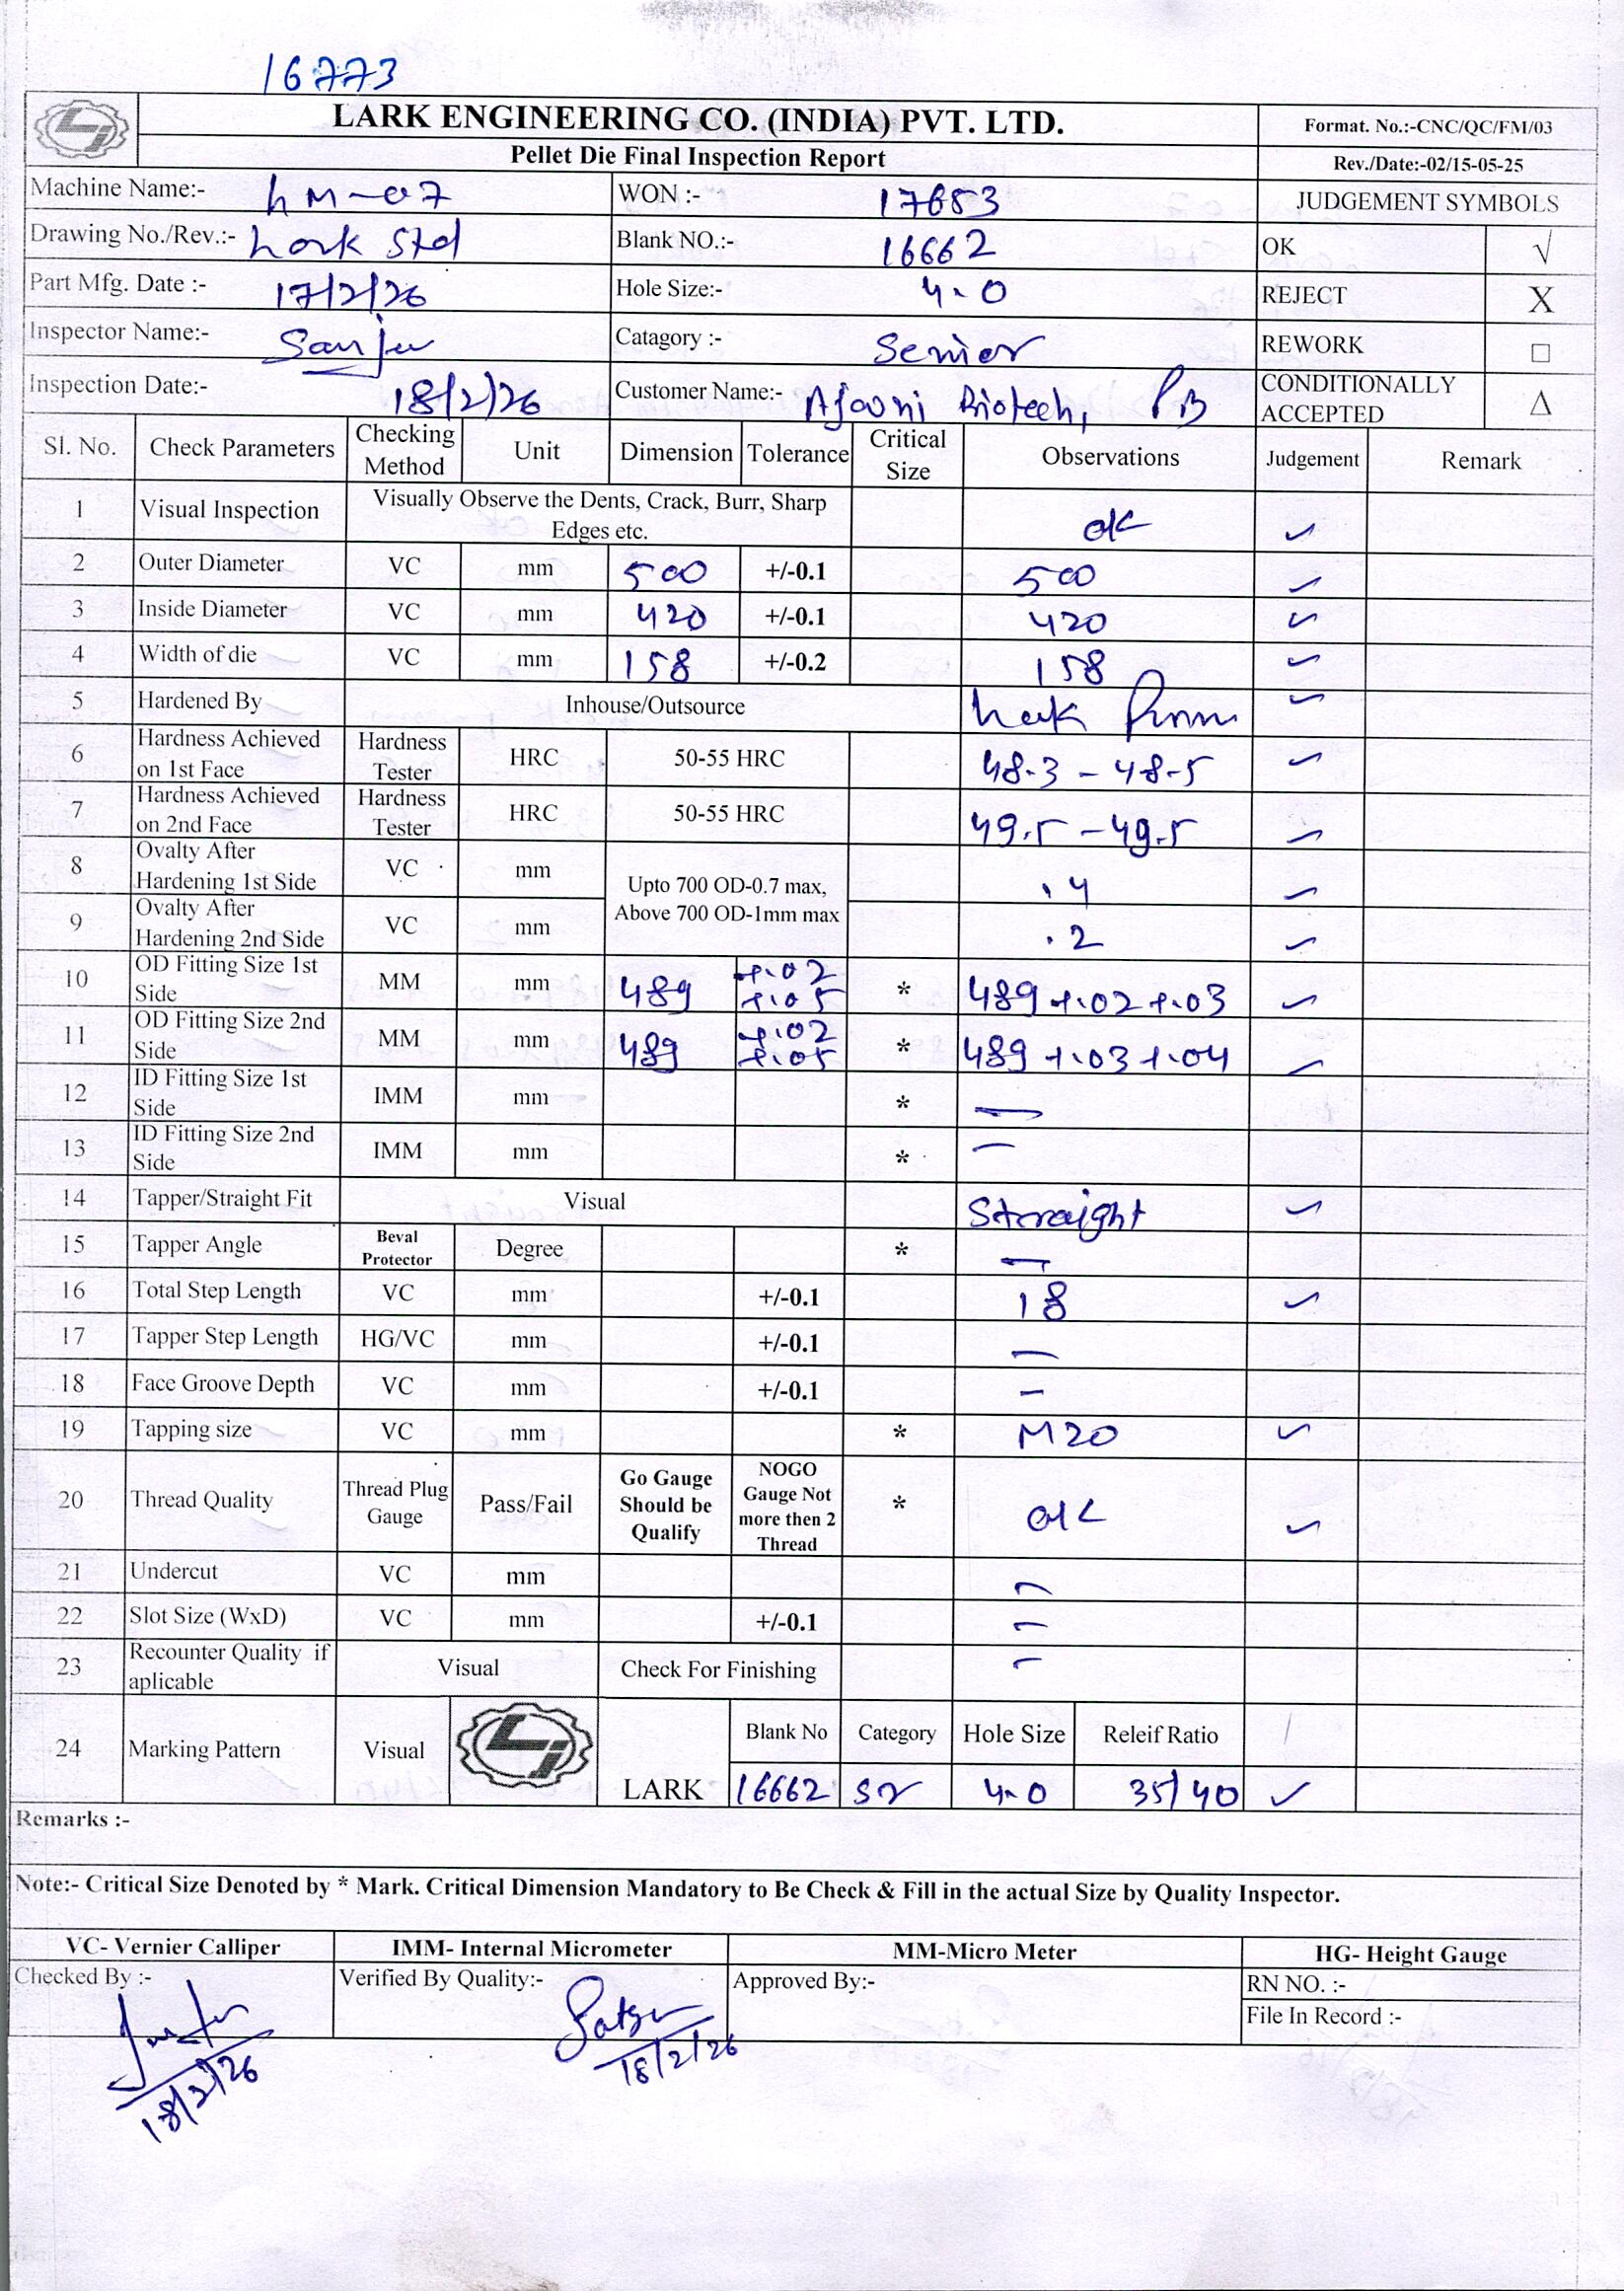 16773
LARK ENGINEERING CO. (INDIA) PVT. LTD.
Format. No.:-CNC/QC/FM/03
Pellet Die Final Inspection Report
Rev./Date:-02/15-05-25
Machine Name:- LM-07 WON :- 17653 JUDGEMENT SYMBOLS
Drawing No./Rev.:- Lark Std Blank NO.:- 16662 OK √
Part Mfg. Date :- 17/2/26 Hole Size:- 4.0 REJECT X
Inspector Name:- Sanju Catagory :- Senior REWORK □
Inspection Date:- 18/2/26 Customer Name:- Ajooni Biotech, PB CONDITIONALLY ACCEPTED Δ
Sl. No. Check Parameters Checking Method Unit Dimension Tolerance Critical Size Observations Judgement Remark
1 Visual Inspection Visually Observe the Dents, Crack, Burr, Sharp Edges etc. ok ✓
2 Outer Diameter VC mm 500 +/-0.1 500 ✓
3 Inside Diameter VC mm 420 +/-0.1 420 ✓
4 Width of die VC mm 158 +/-0.2 158 ✓
5 Hardened By Inhouse/Outsource ✓
6 Hardness Achieved on 1st Face Hardness Tester HRC 50-55 HRC 48.3 - 48.5 ✓
7 Hardness Achieved on 2nd Face Hardness Tester HRC 50-55 HRC 49.5 - 49.5 ✓
8 Ovalty After Hardening 1st Side VC mm Upto 700 OD-0.7 max, Above 700 OD-1mm max .4 ✓
9 Ovalty After Hardening 2nd Side VC mm .2 ✓
10 OD Fitting Size 1st Side MM mm 489 +.02 +.05 * 489 +.02 +.03 ✓
11 OD Fitting Size 2nd Side MM mm 489 +.02 +.05 * 489 +.03 +.04 ✓
12 ID Fitting Size 1st Side IMM mm * —
13 ID Fitting Size 2nd Side IMM mm * —
14 Tapper/Straight Fit Visual Straight ✓
15 Tapper Angle Beval Protector Degree * —
16 Total Step Length VC mm +/-0.1 18 ✓
17 Tapper Step Length HG/VC mm +/-0.1 —
18 Face Groove Depth VC mm +/-0.1 —
19 Tapping size VC mm * M20 ✓
20 Thread Quality Thread Plug Gauge Pass/Fail Go Gauge Should be Qualify NOGO Gauge Not more then 2 Thread * OK ✓
21 Undercut VC mm —
22 Slot Size (WxD) VC mm +/-0.1 —
23 Recounter Quality if aplicable Visual Check For Finishing —
24 Marking Pattern Visual LARK Blank No Category Hole Size Releif Ratio
16662 Sr 4.0 35/40 ✓
Remarks :-
Note:- Critical Size Denoted by * Mark. Critical Dimension Mandatory to Be Check & Fill in the actual Size by Quality Inspector.
VC- Vernier Calliper IMM- Internal Micrometer MM-Micro Meter HG- Height Gauge
Checked By :- Verified By Quality:- Approved By:- RN NO. :-
File In Record :-
18/2/26
18/2/26